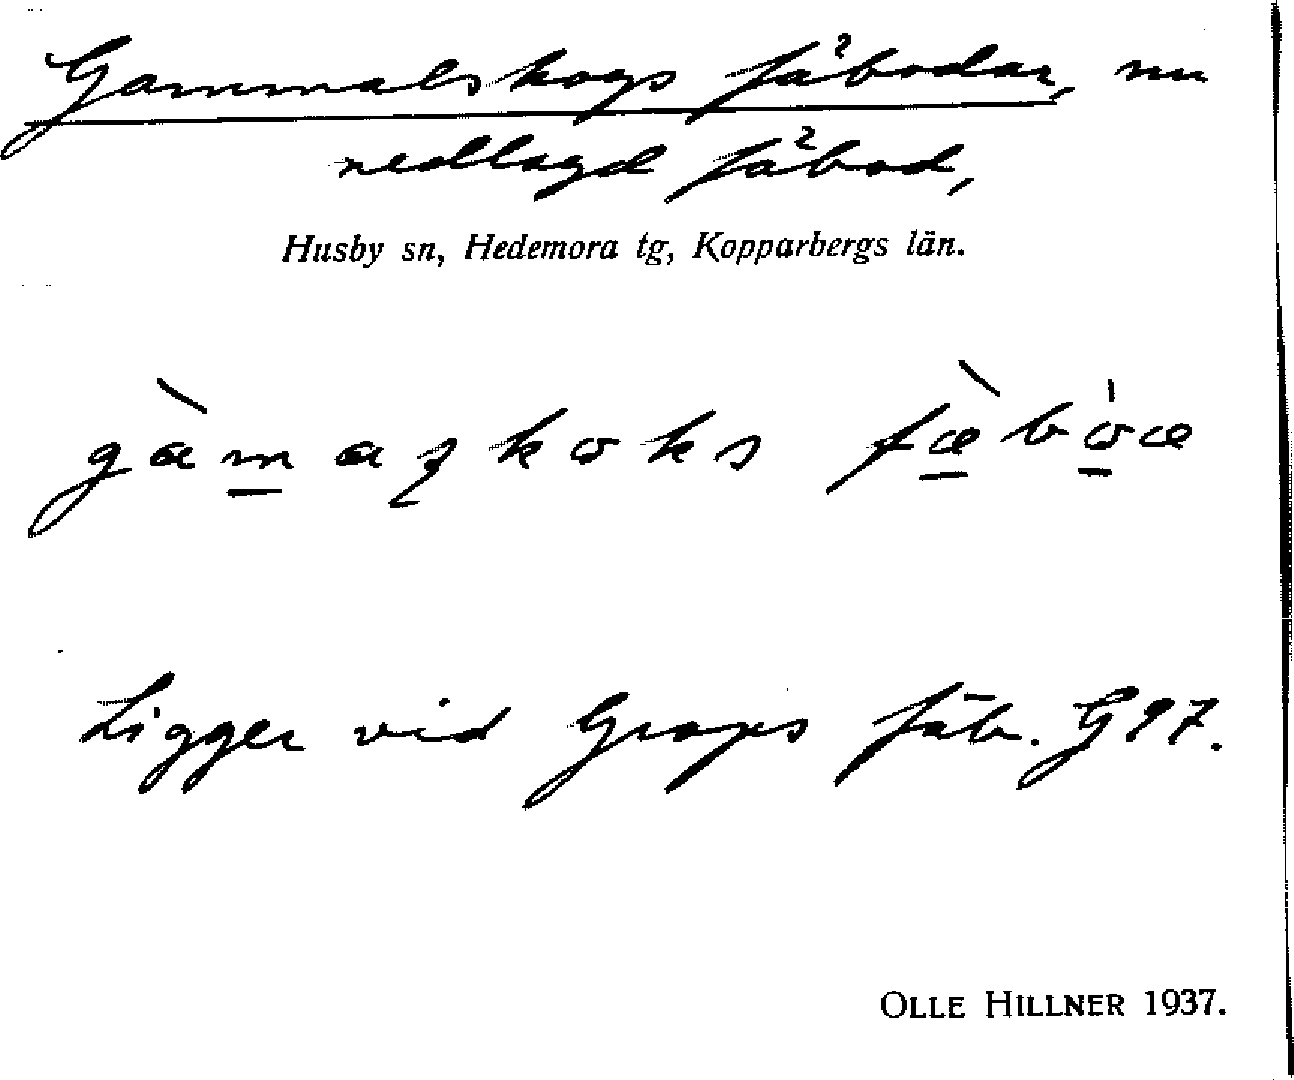 Gammalskogs fäbodar, nu
nedlagd fäbod,
Husby sn, Hedemora tg, Kopparbergs län.
Ligger vid Graps fäb. G97.
OLLE HILLNER 1937.